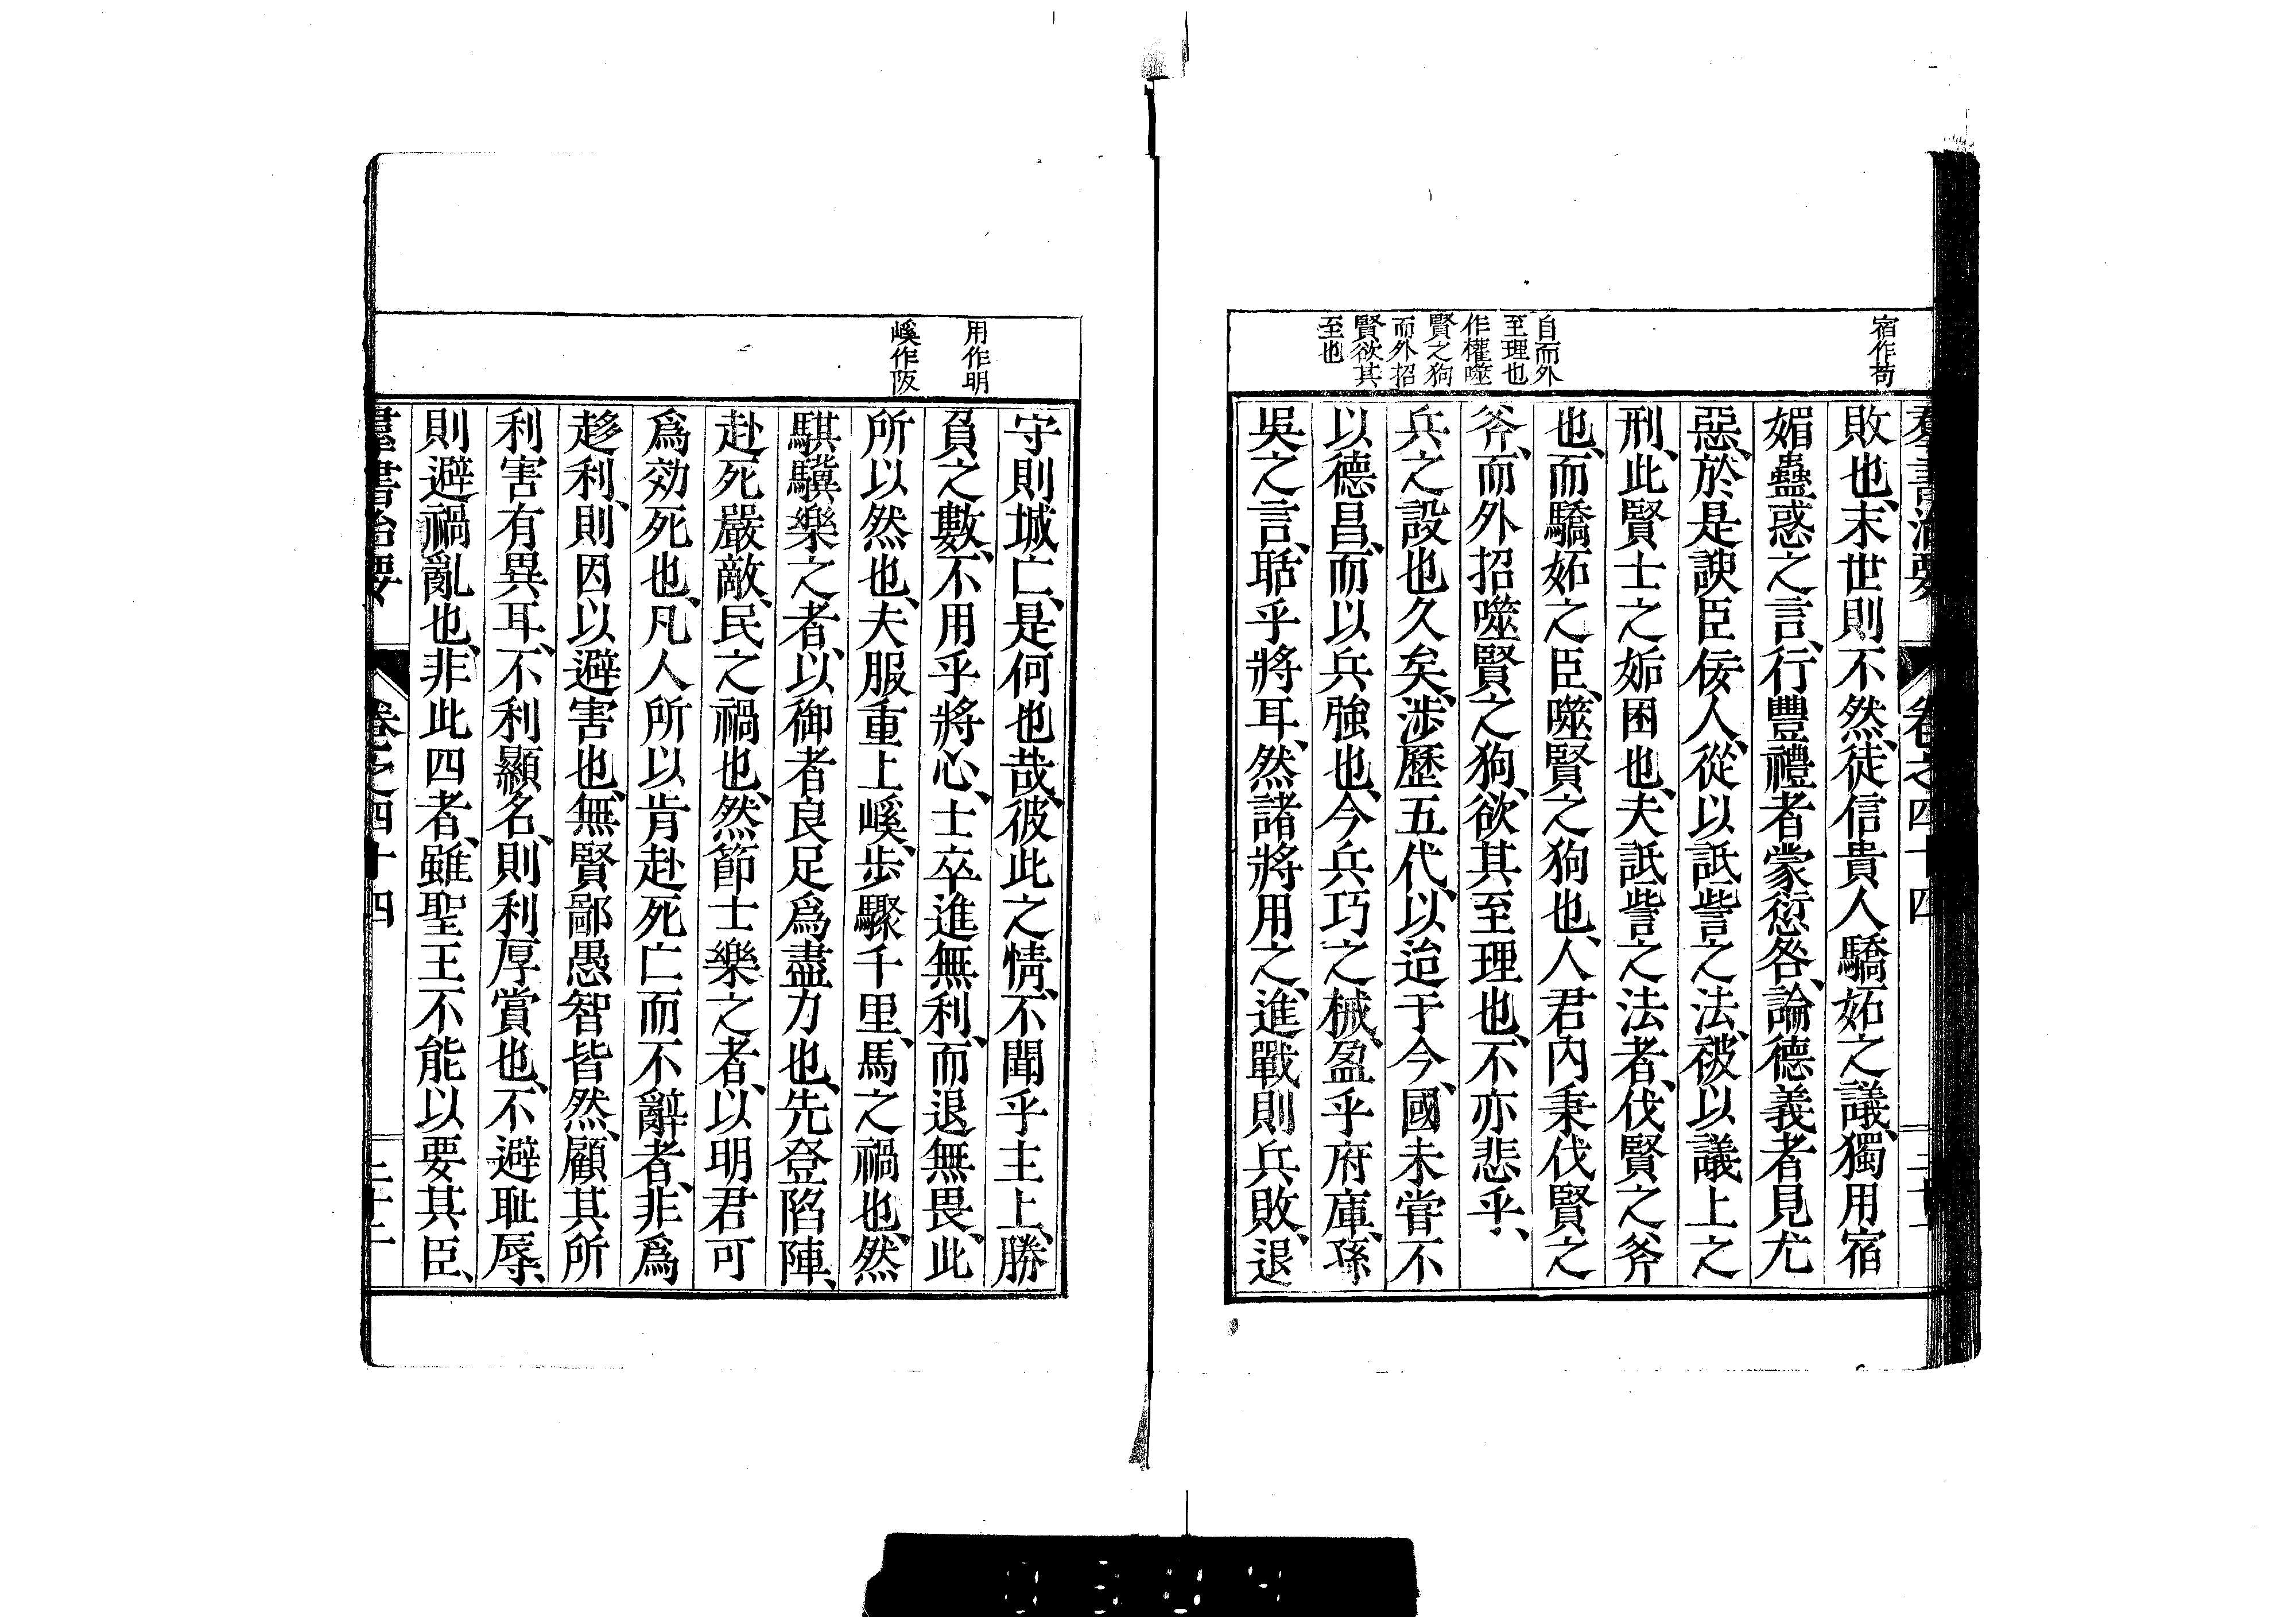 宿作苟
自而外
至理也
作權噬
賢之狗
而外招
賢欲其
至也
敗也、末世則不然、徒信貴人驕妬之議、獨用宿
媚蠱惑之言、行豐禮者蒙愆咎、論德義者見尤
惡、於是諛臣佞人、從以詆訾之法、被以議上之
刑、此賢士之姤困也、夫詆訾之法者、伐賢之斧
也、而驕妬之臣、噬賢之狗也、人君內秉伐賢之
斧、而外招噬賢之狗、欲其至理也、不亦悲乎、
兵之設也久矣、涉歷五代、以迨于今、國未嘗不
以德昌、而以兵強也、今兵巧之械、盈乎府庫、孫
吳之言、聒乎將耳、然諸將用之、進戰則兵敗、退
用作明
嵠作阪
守則城亡、是何也哉、彼此之情、不聞乎主上、勝
負之數、不用乎將心、士卒進無利、而退無畏、此
所以然也、夫服重上嵠、步驟千里、馬之禍也、然
騏驥樂之者、以御者良足爲盡力也、先登陷陣、
赴死嚴敵、民之禍也、然節士樂之者、以明君可
爲効死也、凡人所以肯赴死亡而不辭者、非爲
趍利、則因以避害也、無賢鄙愚智皆然、顧其所
利害有異耳、不利顯名、則利厚賞也、不避耻辱、
則避禍亂也、非此四者、雖聖王不能以要其臣、
羣書治要 卷之四十四